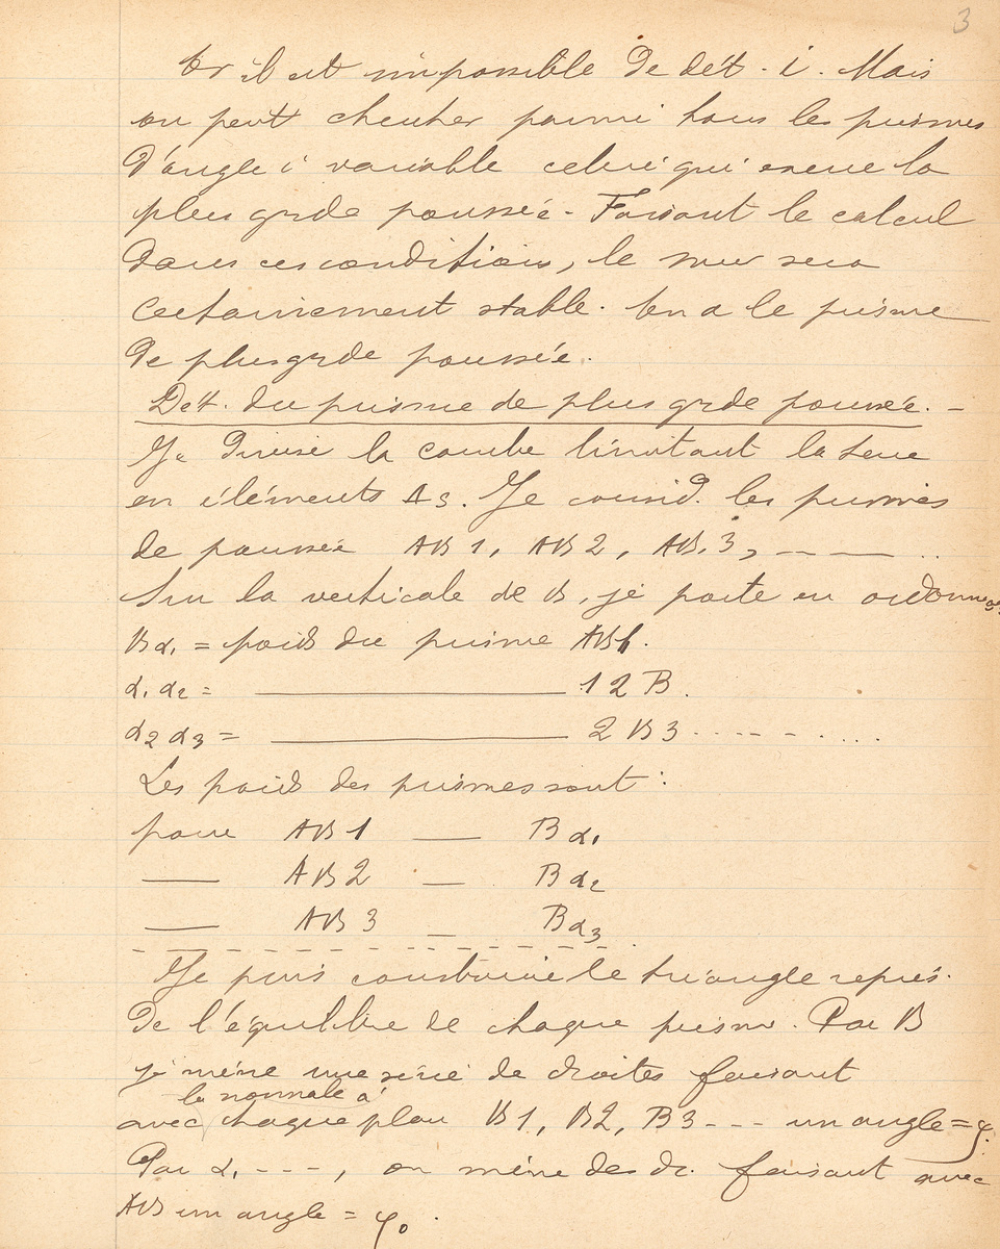 3
Or il est impossible de dét. i. Mais
on peut chercher parmi tous les prismes
d'angle i variable celui qui exerce la
plus grde poussée. Faisant le calcul
dans ces conditions, le mur sera
certainement stable. On a le prisme
de plus grde poussée.
Dét. du prisme de plus grde poussée. -
Je divise la courbe limitant la terre
en éléments Δs. Je consid. les prismes
de poussée AB1, AB2, AB3, - - - ..
Sur la verticale de B, je porte en ordonnées
Bα1 = poids du prisme AB1.
α1 α2 = ——— 12B.
α2 α3 = ——— 2B3 .........
Les poids des prismes sont :
pour AB1 — Bα1
— AB2 — Bα2
— AB3 — Bα3
Je puis construire le triangle représ.
de l'équilibre de chaque prisme. Par B
je mène une série de droites faisant
la normale à
avec chaque plan B1, B2, B3 --- un angle = φ.
Par α1 ---, on mène des dr. faisant avec
AB un angle = φ0.